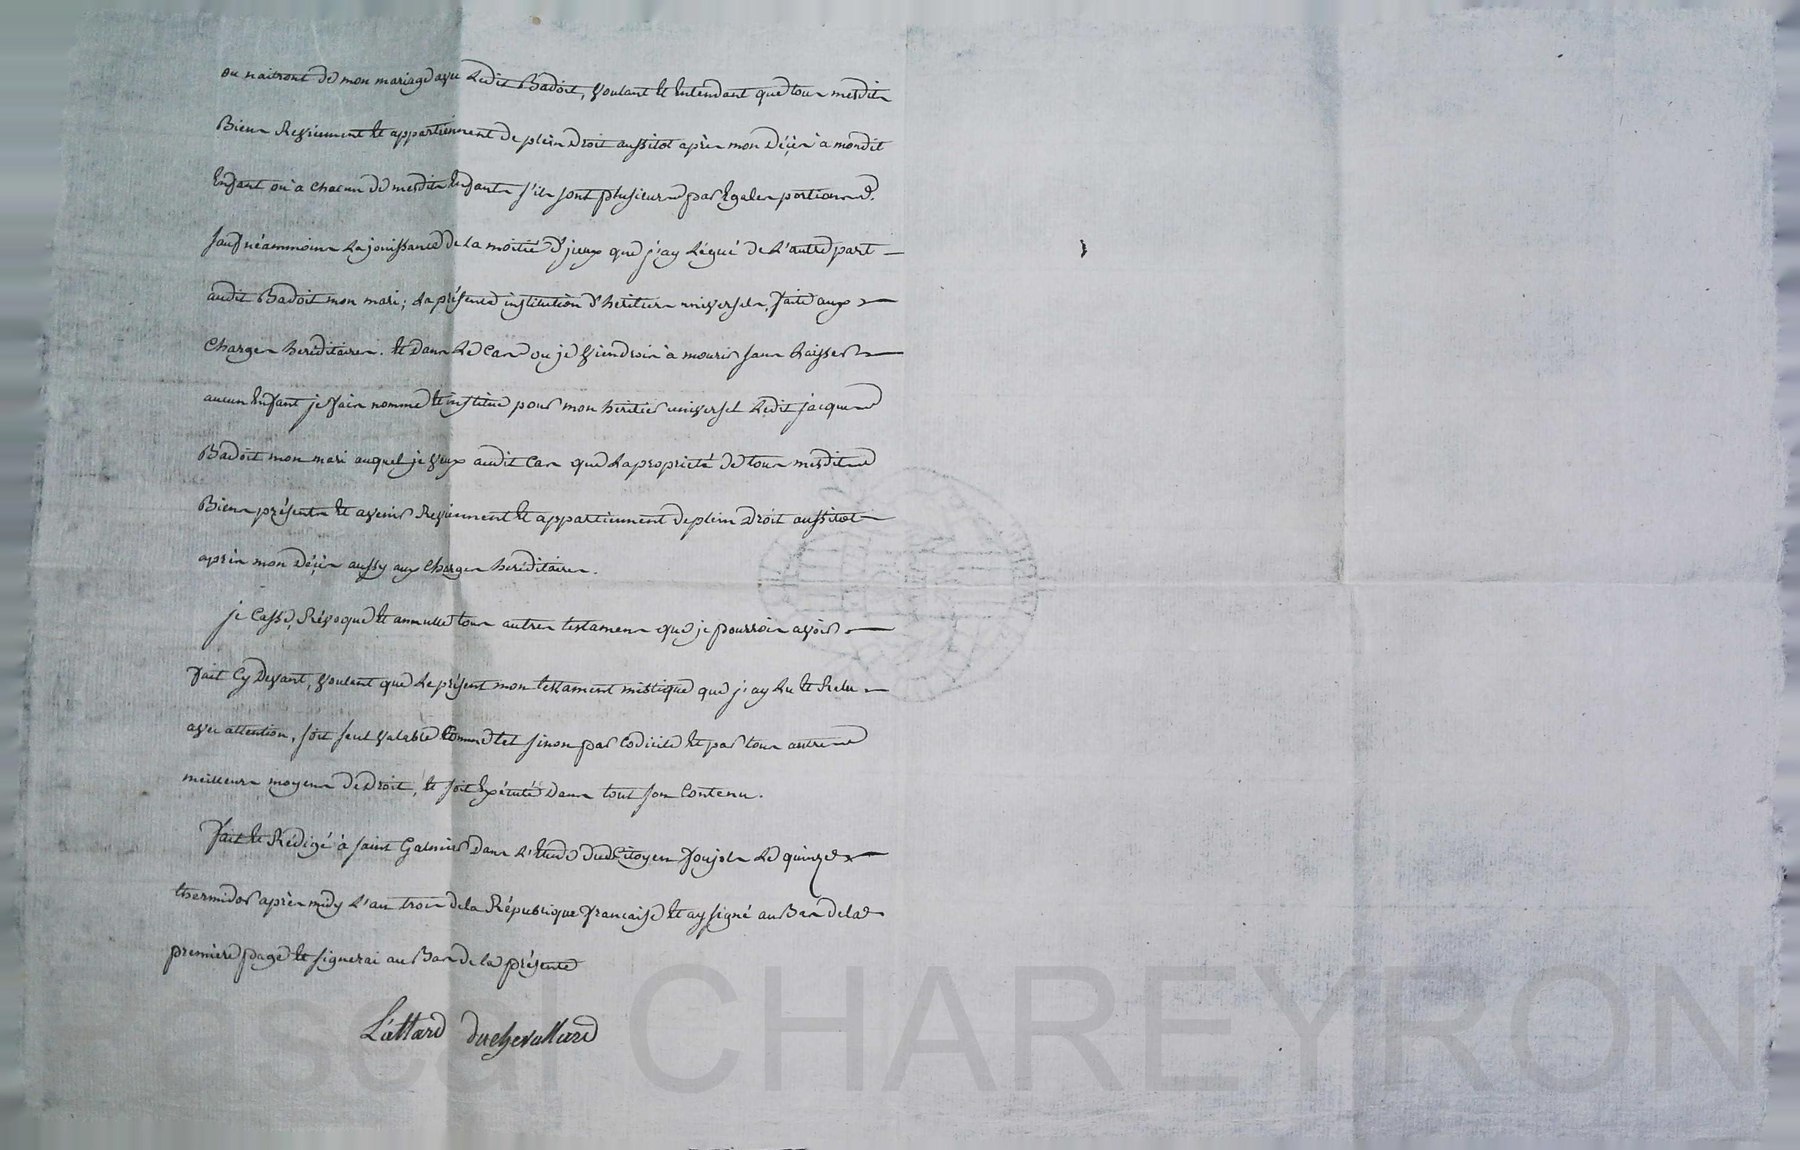 ou naitront de mon mariage avec Ledit Badoit, voulant et Entendant que tous mesdits
Biens Reviennent et appartiennent de plein Droit aussitot après mon Décès à mondit
Enfant ou à chacun de mesdits Enfants s'ils sont plusieurs par Egales portions.
sauf néammoins La jouissance de La moitié d'jceux que j'ay Légué de L'autre part
audit Badoit mon mari; La présente institution d'heritiers universels, faite aux
Charges héréditaires. Et Dans Le Cas ou je viendrois à mourir sans Laisser
aucun Enfant je fais nomme et institue pour mon héritier universel Ledit jacques
Badoit mon mari auquel je veux audit Cas que La propriété de tous mesdits
Biens présents Et avenir Reviennent Et appartiennent de plein Droit aussitot
après mon Décès aussy aux Charges héréditaires.
je Casse, Révoque et annulle tous autres testamens que je pourrois avoir
fait Cy Devant, voulant que Le présent mon testament mistique que j'ay Lu et Relu
avec attention, soit seul valable Comme tel sinon par Codicile et par tous autres
meilleurs moyens de Droit, et soit Exécuté Dans tout son Contenu.
fait et Rédigé à saint Galmier Dans L'Etude du Citoyen Le quinze
thermidor après midy L'an trois de la République francaise et ay signé au Bas de la
premiere page et signerai au Bas de la présente
Lattard duchevallard
Pascal CHAREYRON